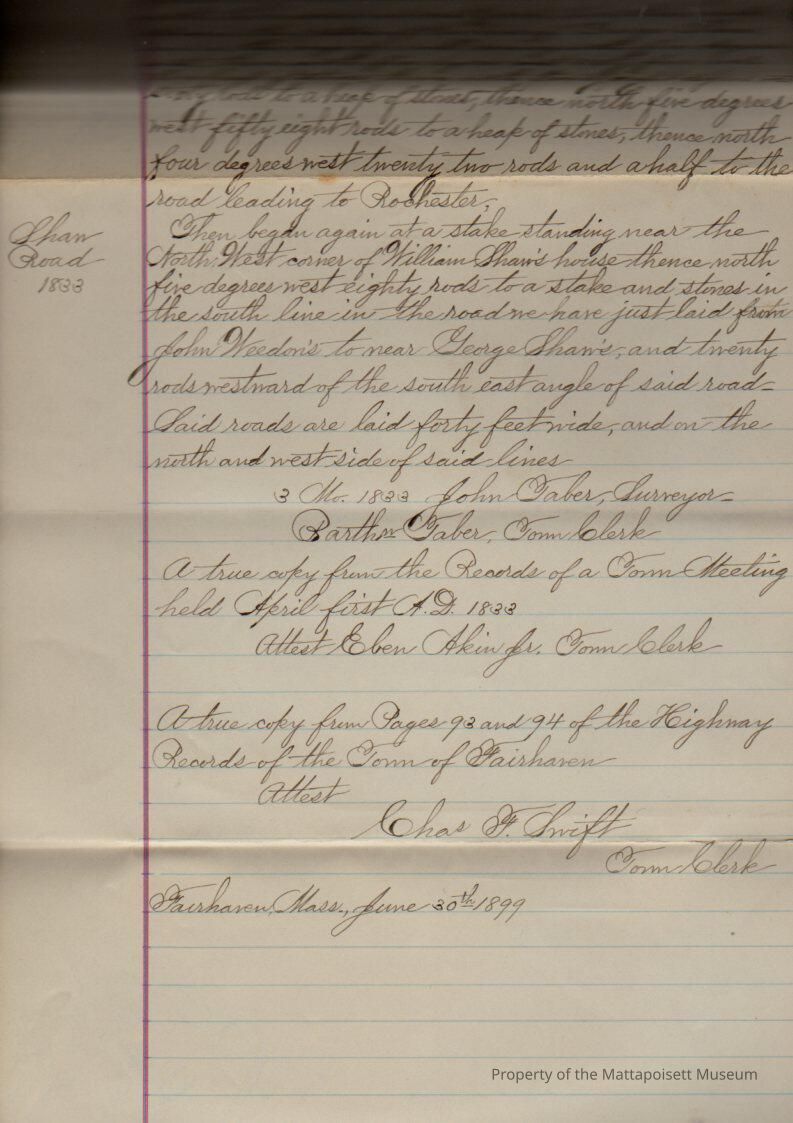 rods to a heap of stones, thence north five degrees
west fifty eight rods to a heap of stones, thence north
four degrees west twenty two rods and a half to the
road leading to Rochester,
Shaw
Road
1833
Then began again at a stake standing near the
North West corner of William Shaw's house thence north
five degrees west eighty rods to a stake and stones in
the south line in the road we have just laid from
John Weedon's to near George Shaw's, and twenty
rods westward of the south east angle of said road=
Said roads are laid forty feet wide, and on the
north and west side of said lines
3 Mo. 1833 John Taber, Surveyor=
Barthw Taber, Town Clerk
A true copy from the Records of a Town Meeting
held April first A.D. 1833
Attest Eben Akin Jr. Town Clerk
A true copy from Pages 93 and 94 of the Highway
Records of the Town of Fairhaven
Attest
Chas F. Swift
Town Clerk
Fairhaven, Mass., June 30th 1899
Property of the Mattapoisett Museum